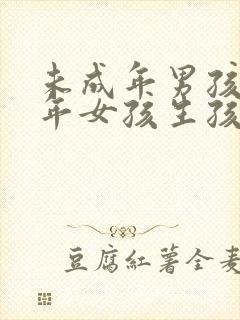 未成年男孩
年女孩生孩
豆腐红薯全麦